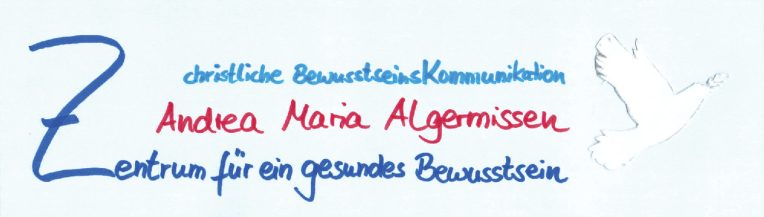 christliche BewusstseinsKommunikation
Andrea Maria Algermissen
Zentrum für ein gesundes Bewusstsein